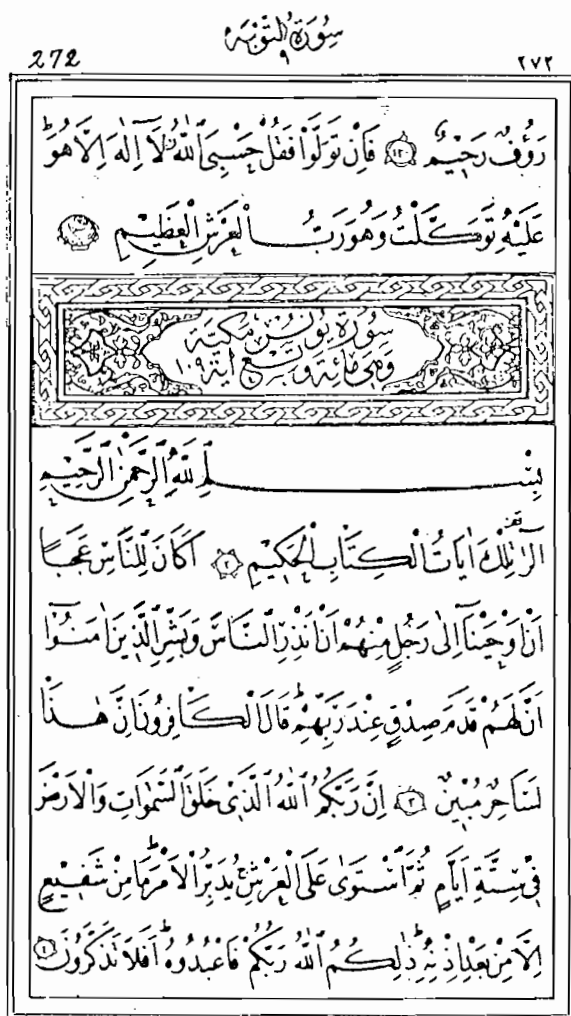 سُورَةُ التَّوْبَةِ
272 ٩ ٢٧٢
رَؤُفٌ رَحِيمٌ فَاِنْ تَوَلَّوْا فَقُلْ حَسْبِيَ اللّٰهُ لَٓا اِلٰهَ اِلَّا هُوَ
عَلَيْهِ تَوَكَّلْتُ وَهُوَ رَبُّ الْعَرْشِ الْعَظِيمِ
سُورَةُ يُونُسَ مَكِّيَّةٌ
وَهِيَ مِائَةٌ وَتِسْعُ اٰيَةً ١٠٩
بِسْمِ اللّٰهِ الرَّحْمٰنِ الرَّحِيمِ
الٓرٰ تِلْكَ اٰيَاتُ الْكِتَابِ الْحَكِيمِ ٢ اَكَانَ لِلنَّاسِ عَجَبًا
اَنْ اَوْحَيْنَٓا اِلٰى رَجُلٍ مِنْهُمْ اَنْ اَنْذِرِ النَّاسَ وَبَشِّرِ الَّذِينَ اٰمَنُٓوا
اَنَّ لَهُمْ قَدَمَ صِدْقٍ عِنْدَ رَبِّهِمْ قَالَ الْكَافِرُونَ اِنَّ هٰذَا
لَسَاحِرٌ مُبِينٌ ٣ اِنَّ رَبَّكُمُ اللّٰهُ الَّذِي خَلَقَ السَّمٰوَاتِ وَالْاَرْضَ
فِي سِتَّةِ اَيَّامٍ ثُمَّ اسْتَوٰى عَلَى الْعَرْشِ يُدَبِّرُ الْاَمْرَ مَا مِنْ شَفِيعٍ
اِلَّا مِنْ بَعْدِ اِذْنِهِ ذٰلِكُمُ اللّٰهُ رَبُّكُمْ فَاعْبُدُوهُ اَفَلَا تَذَكَّرُونَ